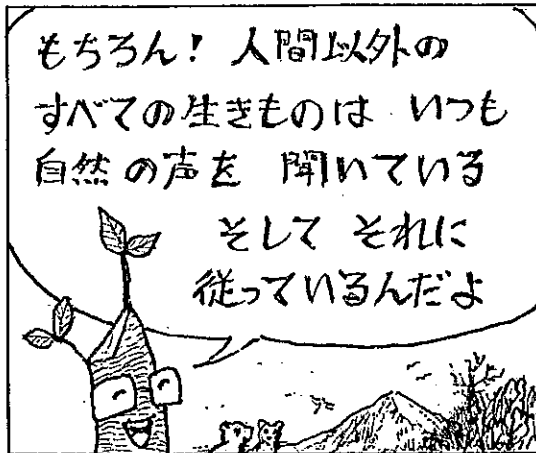 もちろん！ 人間以外の
すべての生きものは いつも
自然の声を 聞いている
そして それに
従っているんだよ